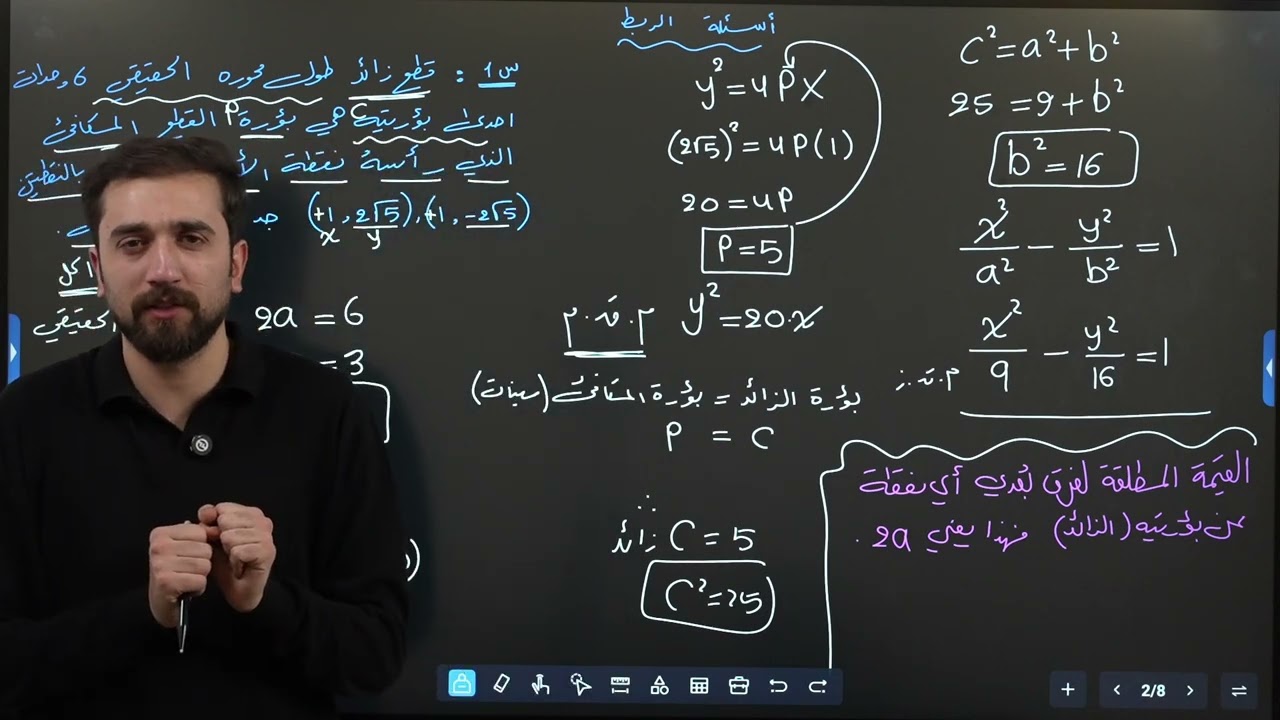 أسئلة الربط
س1 : قطع زائد طول محوره الحقيقي 6 وحدات
احدى بؤرتيه هي بؤرة القطع المكافئ
C P
الذي رأسه نقطة بالنقطتين
(+1, 2√5), (+1, -2√5) جد
x y
كل
الحقيقي 2a = 6
= 3
y² = 4PX
(2√5)² = 4P(1)
20 = 4P
P = 5
م.ق.م y² = 20.x
بؤرة الزائد = بؤرة المكافئ (سينات)
P = C
∴
زائد C = 5
C² = 25
C² = a² + b²
25 = 9 + b²
b² = 16
x²/a² - y²/b² = 1
م.ق.ز x²/9 - y²/16 = 1
القيمة المطلقة لفرق بُعدي أي نقطة
عن بؤرتيه (الزائد) فهذا يعني 2a .
2/8